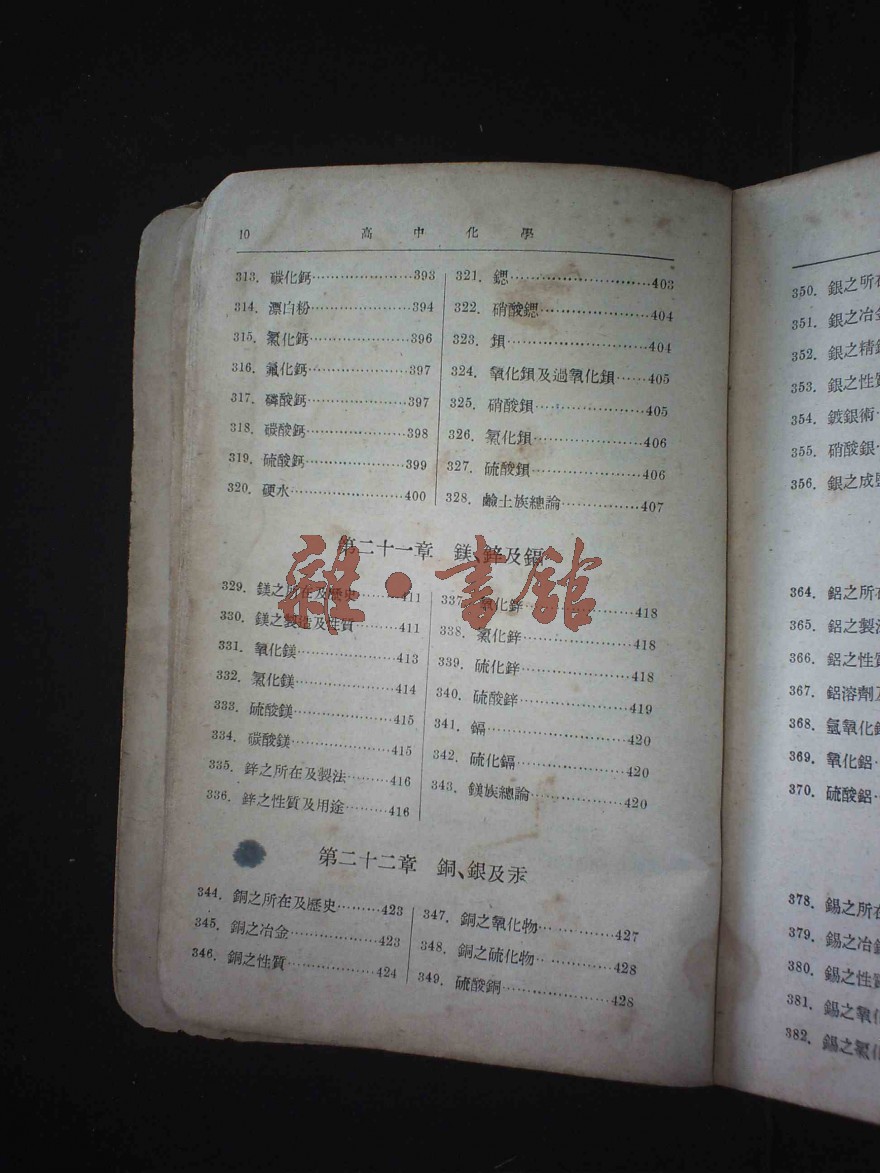 10 高中化學
313. 碳化鈣……393
314. 漂白粉……394
315. 氯化鈣……396
316. 氟化鈣……397
317. 磷酸鈣……397
318. 碳酸鈣……398
319. 硫酸鈣……399
320. 硬水……400
321. 鍶……403
322. 硝酸鍶……404
323. 鋇……404
324. 氧化鋇及過氧化鋇……405
325. 硝酸鋇……405
326. 氯化鋇……406
327. 硫酸鋇……406
328. 鹼土族總論……407
第二十一章 鎂、鋅及鎘
329. 鎂之所在及歷史……411
330. 鎂之製造及性質……411
331. 氧化鎂……413
332. 氯化鎂……414
333. 硫酸鎂……415
334. 碳酸鎂……415
335. 鋅之所在及製法……416
336. 鋅之性質及用途……416
337. 氧化鋅……418
338. 氯化鋅……418
339. 硫化鋅……418
340. 硫酸鋅……419
341. 鎘……420
342. 硫化鎘……420
343. 鎂族總論……420
第二十二章 銅、銀及汞
344. 銅之所在及歷史……423
345. 銅之冶金……423
346. 銅之性質……424
347. 銅之氧化物……427
348. 銅之硫化物……428
349. 硫酸銅……428
雜·書館
350. 銀之所
351. 銀之冶金
352. 銀之精
353. 銀之性質
354. 鍍銀術
355. 硝酸銀
356. 銀之成
364. 鋁之所
365. 鋁之製法
366. 鋁之性質
367. 鋁溶劑及
368. 氫氧化
369. 氧化鋁
370. 硫酸鋁
378. 錫之所
379. 錫之冶
380. 錫之性質
381. 錫之氧
382. 錫之氯